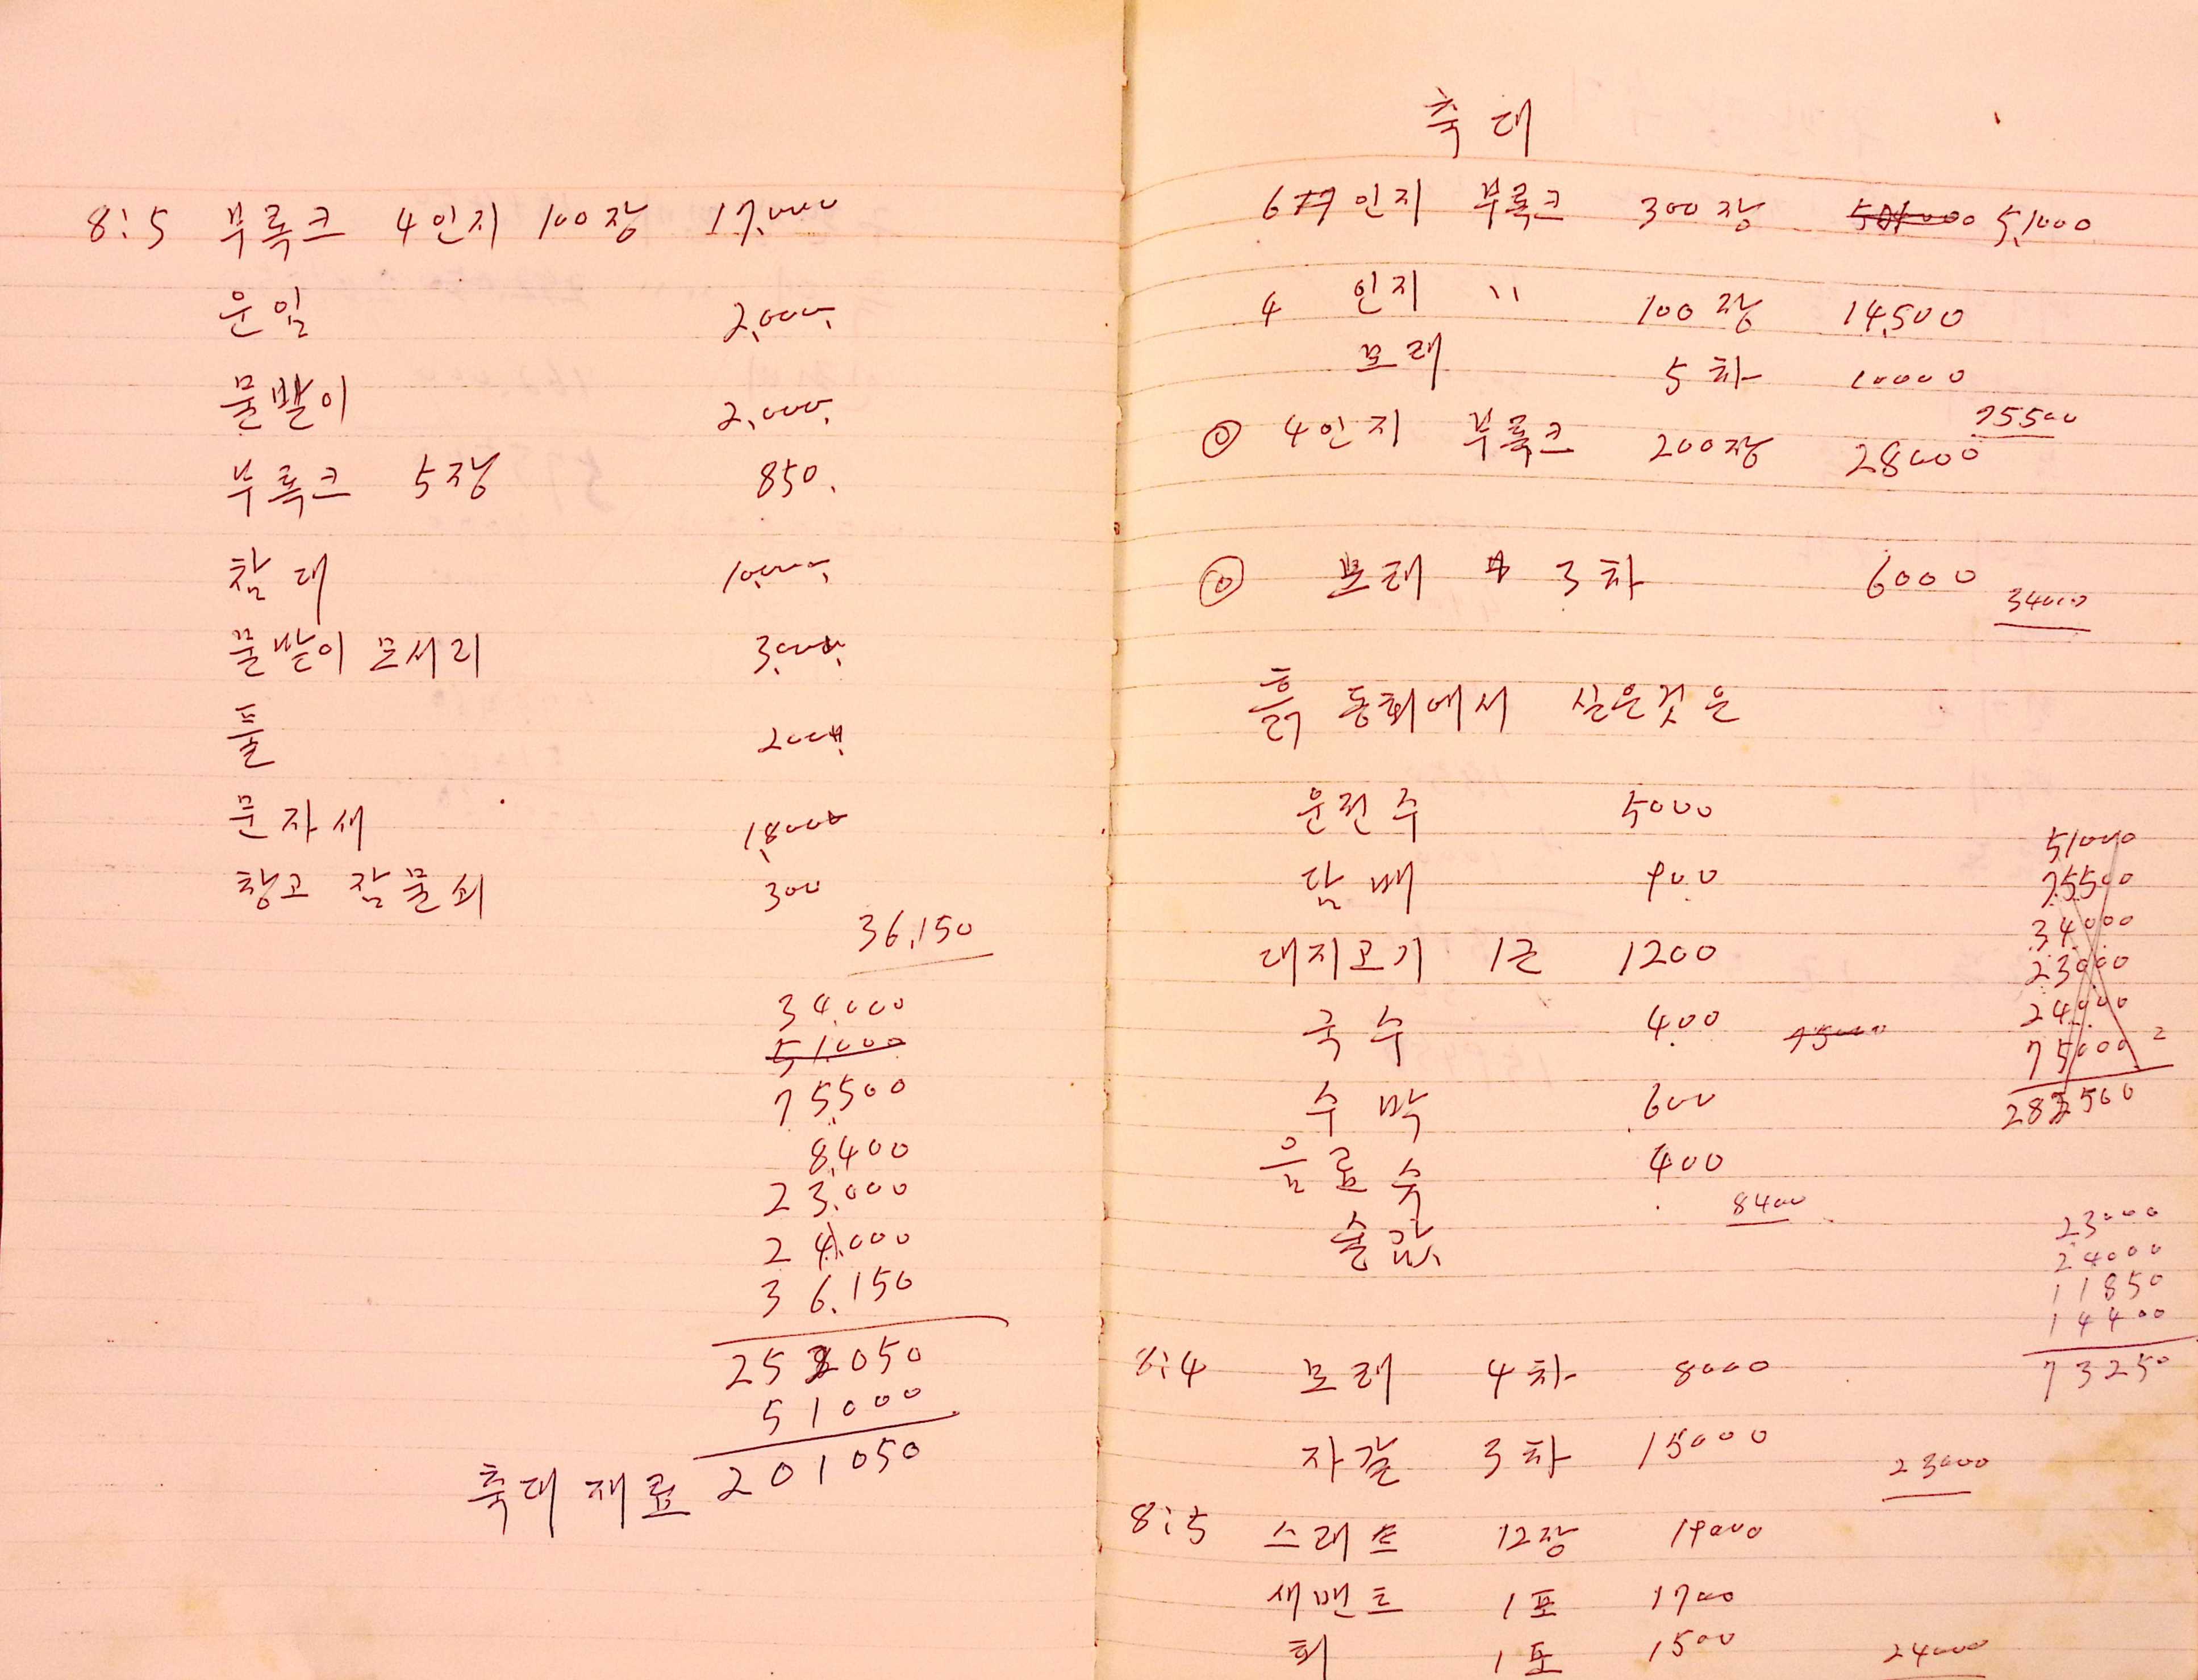 8:5 부록크 4인지 100장 17,000
운임 2,000
물받이 2,000
부록크 5장 850
참대 10,000
물받이 모서리 3,000
풀 2000
문자새 18000
창고 잠물쇠 300
36,150
34,000
51,000
75500
8,400
23,000
24,000
36,150
252050
51000
축대 재료 201050
축대
6인지 부록크 300장 5,1000
4 인지 〃 100장 14,500
모래 5차 10000
75500
◎ 4인지 부록크 200장 28000
◎ 모래 3차 6000
34000
흙 동회에서 실은것 은
운전수 5000
담배 900
대지고기 1근 1200
국수 400 75000
수박 600
음료수 400
8400
술값
51000
75500
34000
23000
24000
75000
282500
23000
24000
11850
14400
73250
8:4 모래 4차 8000
자갈 3차 15000
23000
8:5 스레트 12장 19000
새맨트 1포 1700
회 1포 1500
24000